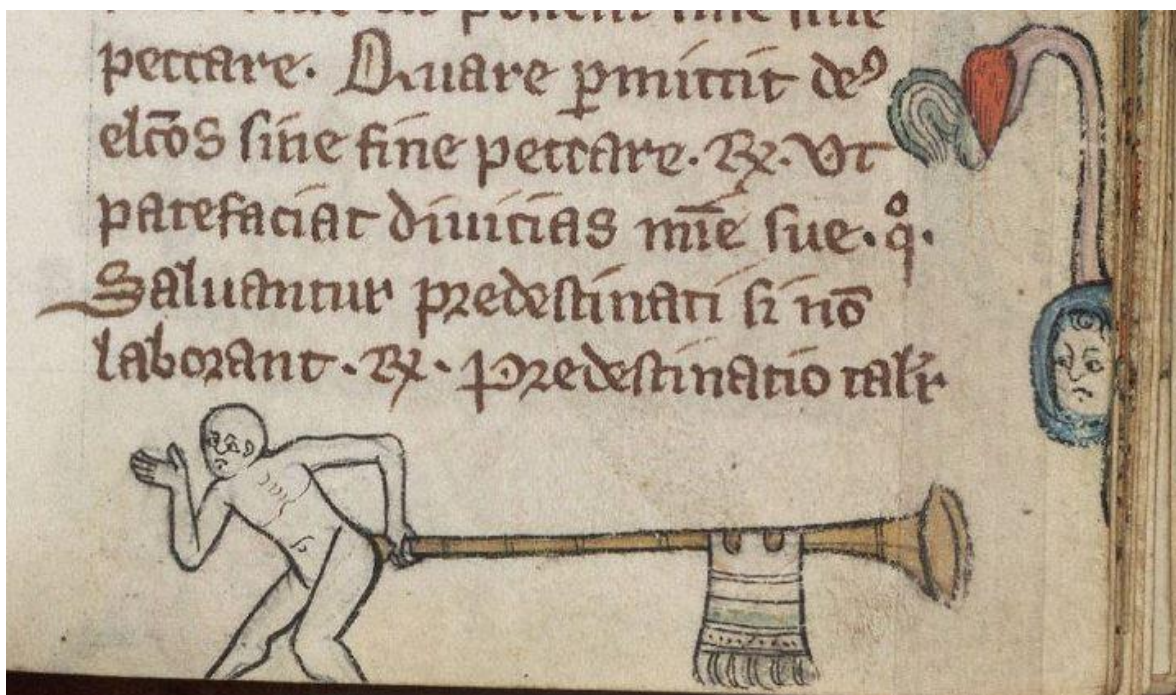 sine fine
peccare. Quare ꝑmittit deꝰ
elc̄os sine fine peccare. ℞. Vt
patefaciat diuicias mīe sue. qͦ.
Saluantur predestinati si nō
laborant. ℞. Predestinatio talr̄